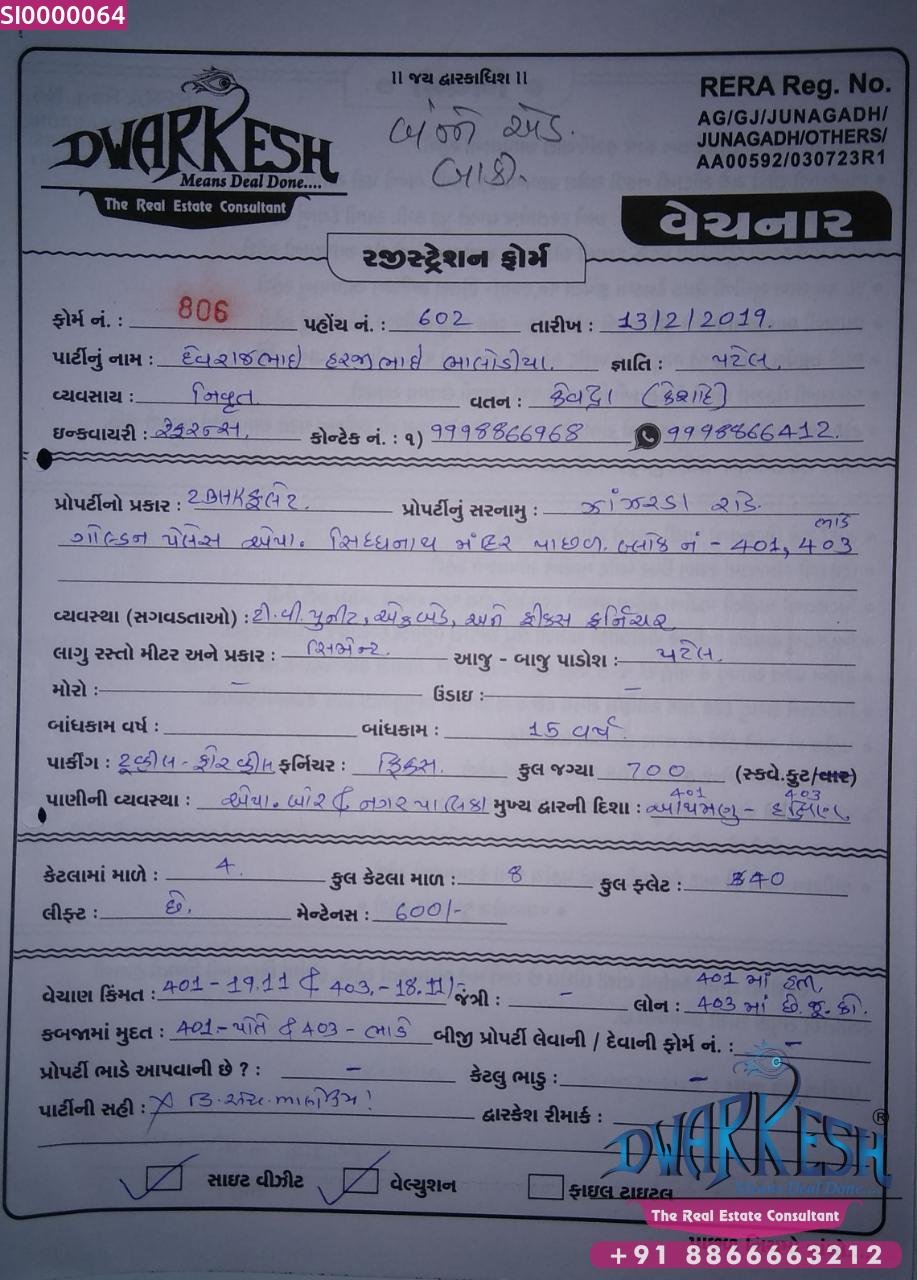 SI0000064
।। જય દ્વારકાધિશ ।।
DWARKESH
Means Deal Done....
The Real Estate Consultant
બંન્ને એડ.
બાકી.
RERA Reg. No.
AG/GJ/JUNAGADH/
JUNAGADH/OTHERS/
AA00592/030723R1
વેચનાર
રજીસ્ટ્રેશન ફોર્મ
ફોર્મ નં. : 806 પહોંચ નં. : 602 તારીખ : 13/2/2019.
પાર્ટીનું નામ : દેવરાજભાઇ હરજીભાઇ ભાલોડીયા. જ્ઞાતિ : પટેલ.
વ્યવસાય : નિવૃત. વતન : કેવદ્રા (કેશોદ)
ઇન્કવાયરી : રેફરન્સ. કોન્ટેક નં. : ૧) 9998866968 9998866412.
પ્રોપર્ટીનો પ્રકાર : 2BHK ફ્લેટ. પ્રોપર્ટીનું સરનામુ : ઝાંઝરડા રોડ.
ભાડે
ગોલ્ડન પેલેસ એપા. સિધ્ધનાથ મંદિર પાછળ. બ્લોક નં - 401, 403
વ્યવસ્થા (સગવડતાઓ) : ટી.વી.યુનીટ, એક બેડ, અને ફીકસ ફર્નિચર
લાગુ રસ્તો મીટર અને પ્રકાર : સિમેન્ટ. આજુ - બાજુ પાડોશ : પટેલ.
મોરો : – ઉંડાઇ : –
બાંધકામ વર્ષ : બાંધકામ : 15 વર્ષ.
પાર્કીંગ : ટૂવ્હીલ - ફોરવ્હીલ ફર્નિચર : ફિકસ. કુલ જગ્યા 700 (સ્કવે.ફુટ/વાર)
401 403
પાણીની વ્યવસ્થા : એપા. બોર & નગરપાલિકા મુખ્ય દ્વારની દિશા : આથમણુ - દક્ષિણ.
કેટલામાં માળે : 4. કુલ કેટલા માળ : 8 કુલ ફ્લેટ : 40
લીફ્ટ : છે. મેન્ટેનસ : 600/-
401 માં હતી,
વેચાણ કિંમત : 401 - 19.11 & 403. - 18.11/- જંત્રી : – લોન : 403 માં છે.
કબજામાં મુદત : 401 - પોતે & 403 - ભાડે બીજી પ્રોપર્ટી લેવાની / દેવાની ફોર્મ નં. : –
પ્રોપર્ટી ભાડે આપવાની છે ? : – કેટલુ ભાડુ : –
પાર્ટીની સહી : દ્વારકેશ રીમાર્ક :
સાઇટ વીઝીટ વેલ્યુશન ફાઇલ ટાઇટલ
DWARKESH ®
Means Deal Done....
The Real Estate Consultant
+91 8866663212